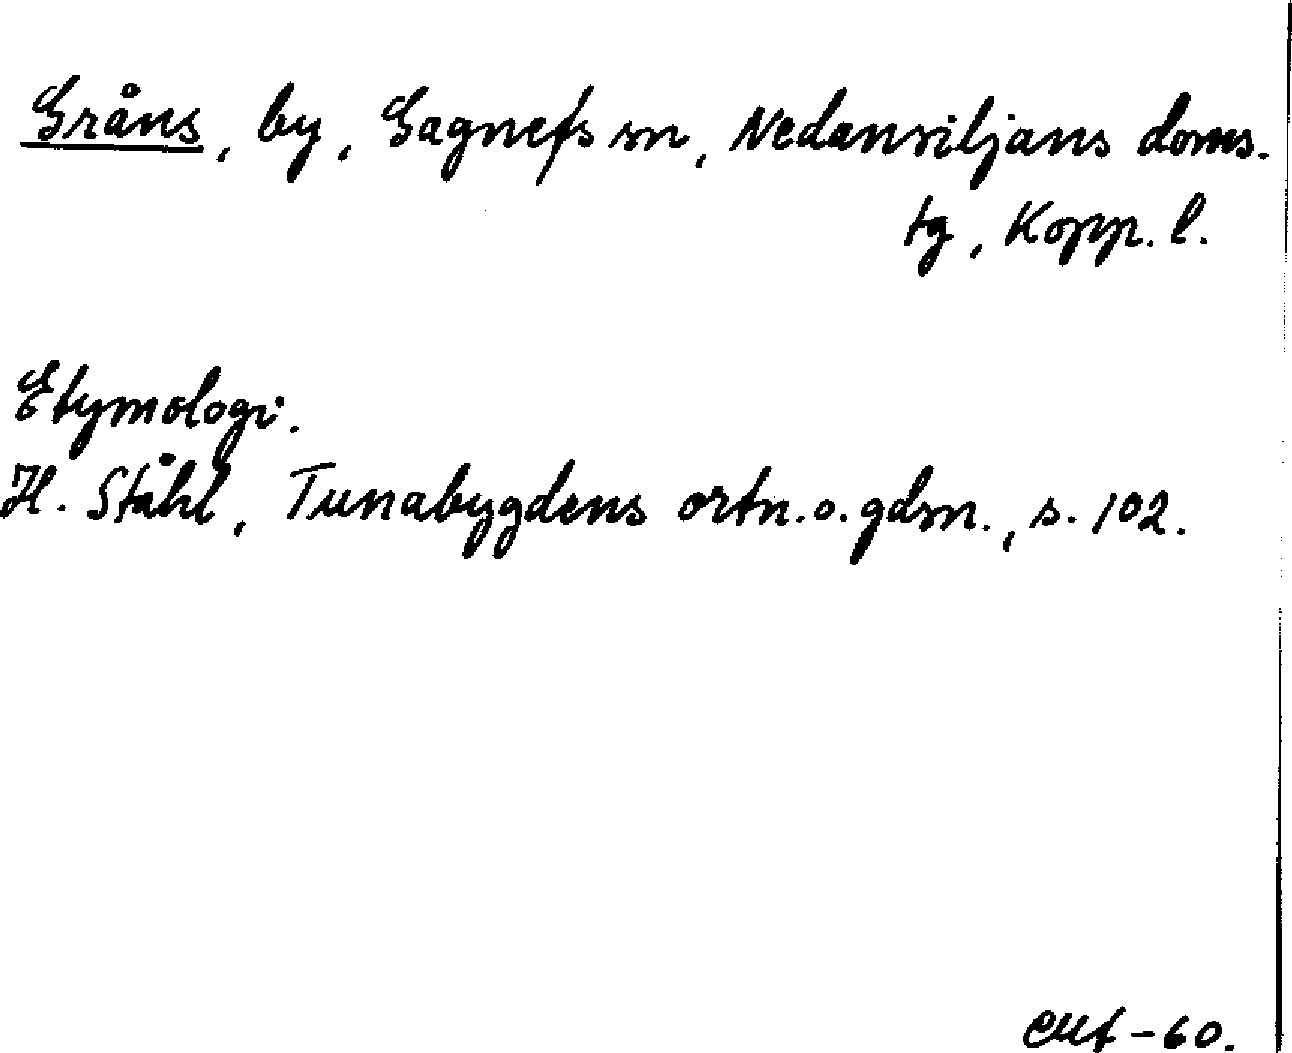 Gråns, by, Gagnefs sn, Nedansiljans doms.
tg, Kopp. l.
Etymologi.
H. Ståhl, Tunabygdens ortn. o. gdsn., s. 102.
-60.